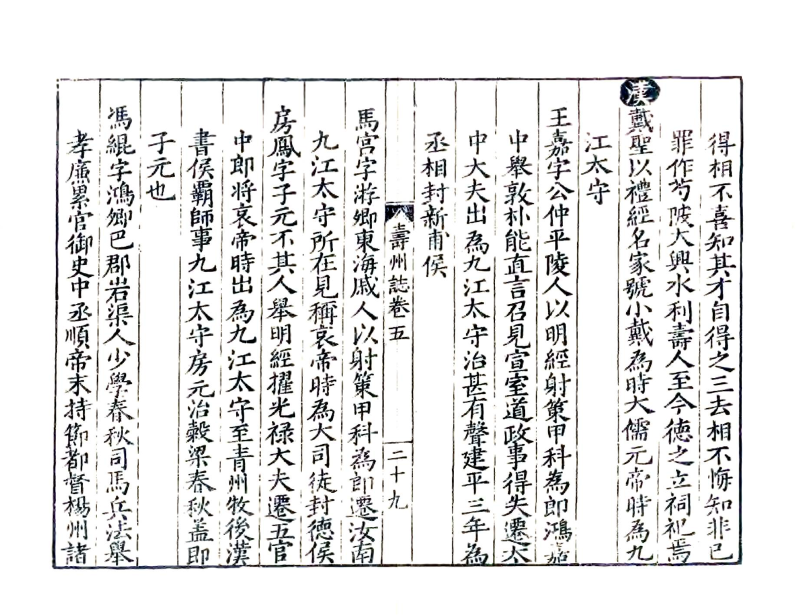 得相不喜知其才自得之三去相不悔知非已
罪作芍陂大興水利壽人至今徳之立祠祀焉
漢戴聖以禮經名家號小戴為時大儒元帝時為九
江太守
王嘉字公仲平陵人以明經射策甲科為郎鴻嘉
中舉敦朴能直言召見宣室道政事得失遷太
中大夫出為九江太守治甚有聲建平三年為
丞相封新甫侯
壽州誌卷五
二十九
馬宫字游卿東海戚人以射策甲科為郎遷汝南
九江太守所在見稱哀帝時為大司徒封德侯
房鳳字子元不其人舉明經擢光禄大夫遷五官
中郎将哀帝時出為九江太守至青州牧後漢
書侯霸師事九江太守房元治穀梁春秋盖即
子元也
馮緄字鴻卿巴郡岩渠人少學春秋司馬兵法舉
孝廉累官御史中丞順帝末持節都督楊州諸